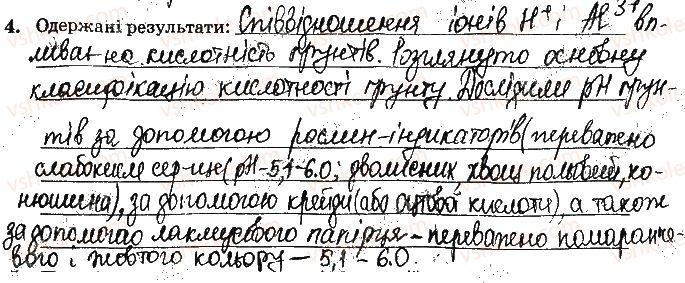 4. Одержані результати: Співвідношення іонів H⁺ і Al³⁺ вп-
ливає на кислотність ґрунтів. Розглянуто основну
класифікацію кислотності ґрунту. Дослідили pH ґрун-
тів за допомогою рослин-індикаторів (переважено
слабокисле сер-ще (pH-5,1-6.0; хвощ польовий, ко-
нюшина), за допомогою крейди (або оцтової кислоти), а також
за допомогою лакмусового папірця - переважено помаранче-
вого і жовтого кольору - 5,1 - 6.0.